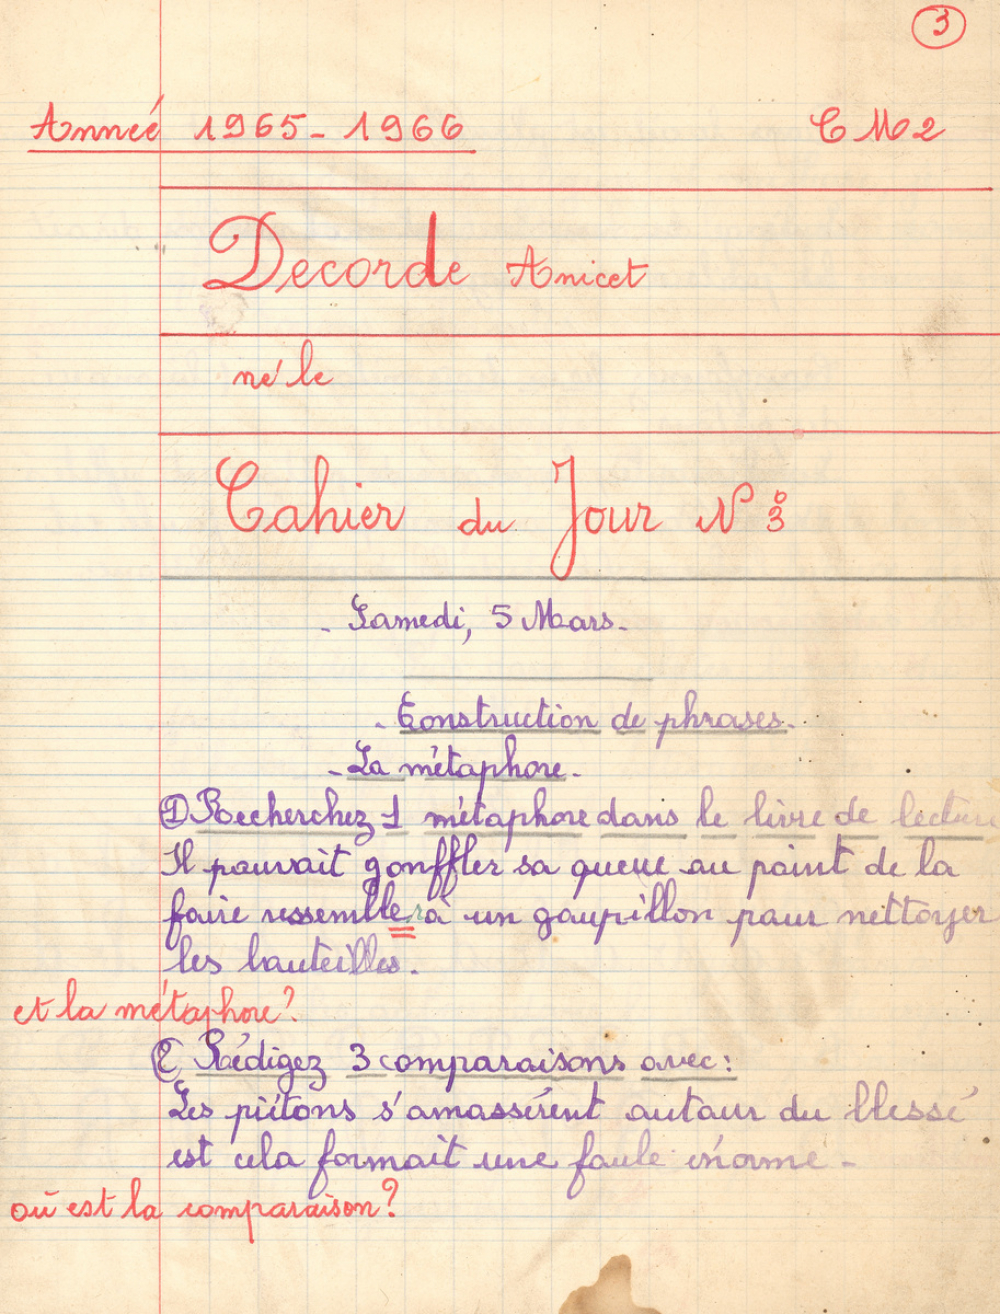 3
Anneé 1965-1966 CM2
Decorde Anicet
né le
Cahier du Jour N° 3
- Samedi, 5 Mars.
- Construction de phrases.
- La métaphore.
① Recherchez 1 métaphore dans le livre de lecture
Il pouvait gonffler sa queue au point de la
faire ressembler à un goupillon pour nettoyer
les bouteilles.
et la métaphore?
② Rédigez 3 comparaisons avec:
Les piétons s'amassèrent autour du blessé
est cela formait une foule énorme -
où est la comparaison?